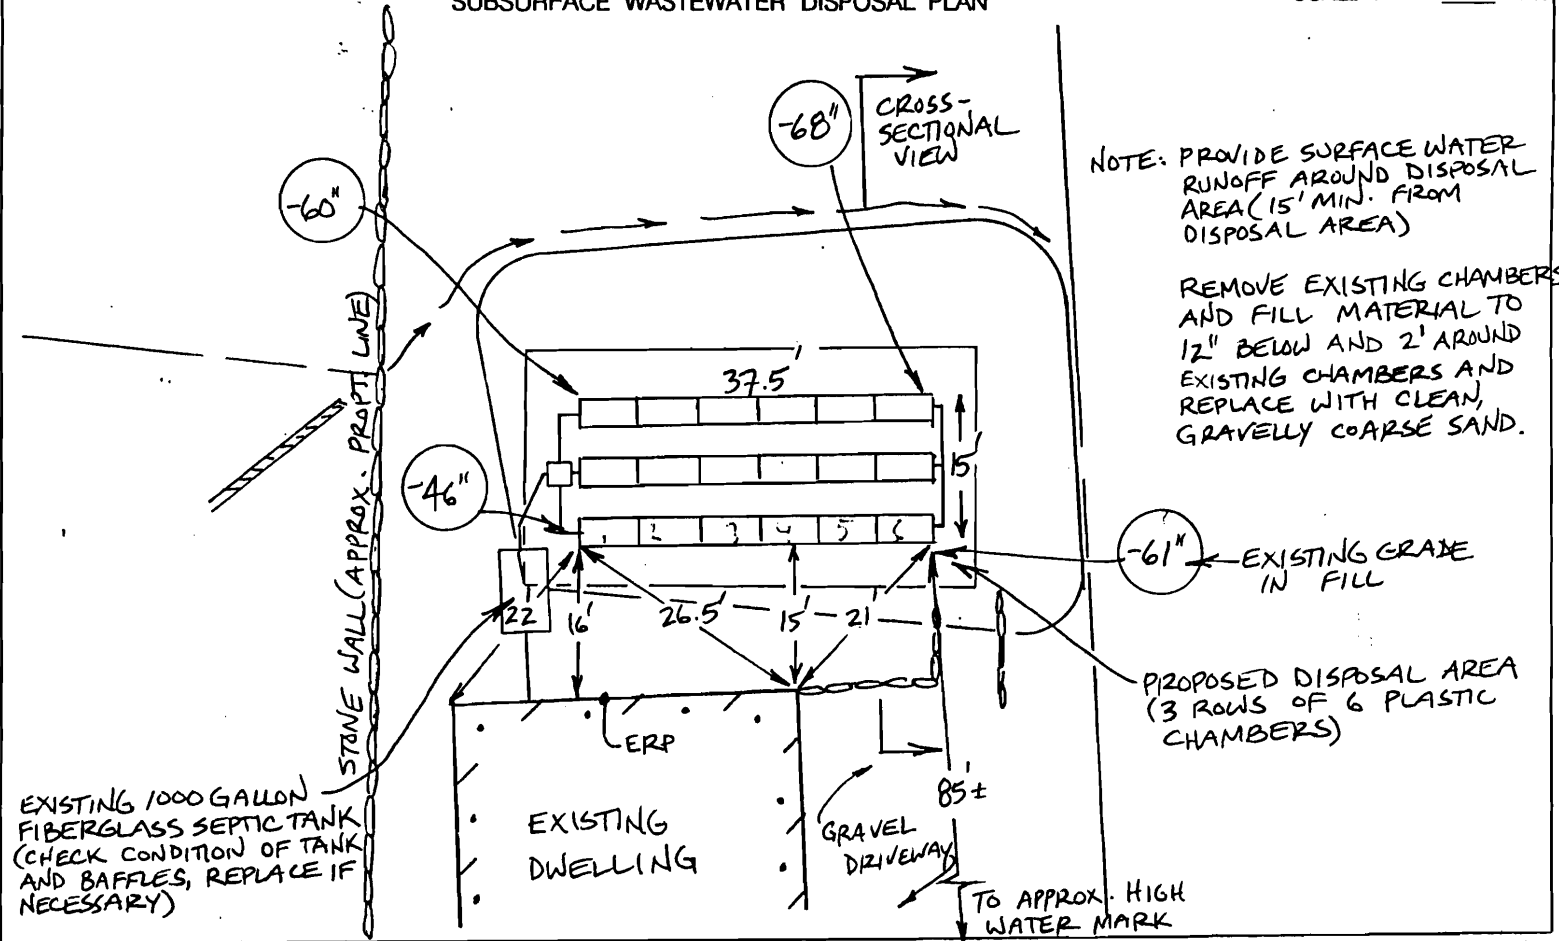 SUBSURFACE WASTEWATER DISPOSAL PLAN
-68"
CROSS-
SECTIONAL
VIEW
-60"
NOTE: PROVIDE SURFACE WATER
RUNOFF AROUND DISPOSAL
AREA (15' MIN. FROM
DISPOSAL AREA)
REMOVE EXISTING CHAMBERS
AND FILL MATERIAL TO
12" BELOW AND 2' AROUND
EXISTING CHAMBERS AND
REPLACE WITH CLEAN,
GRAVELLY COARSE SAND.
STONE WALL (APPROX. PROPT. LINE)
37.5'
15'
-46"
1 2 3 4 5 6
-61"
EXISTING GRADE
IN FILL
22' 16' 26.5' 15' 21'
PROPOSED DISPOSAL AREA
(3 ROWS OF 6 PLASTIC
CHAMBERS)
ERP
85'±
EXISTING 1000 GALLON
FIBERGLASS SEPTIC TANK
(CHECK CONDITION OF TANK
AND BAFFLES, REPLACE IF
NECESSARY)
EXISTING
DWELLING
GRAVEL
DRIVEWAY
TO APPROX. HIGH
WATER MARK